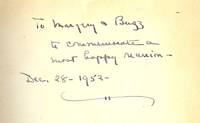 To Margery & Buzz
to commemorate a
most happy reunion —
Dec. 28 - 1953 -